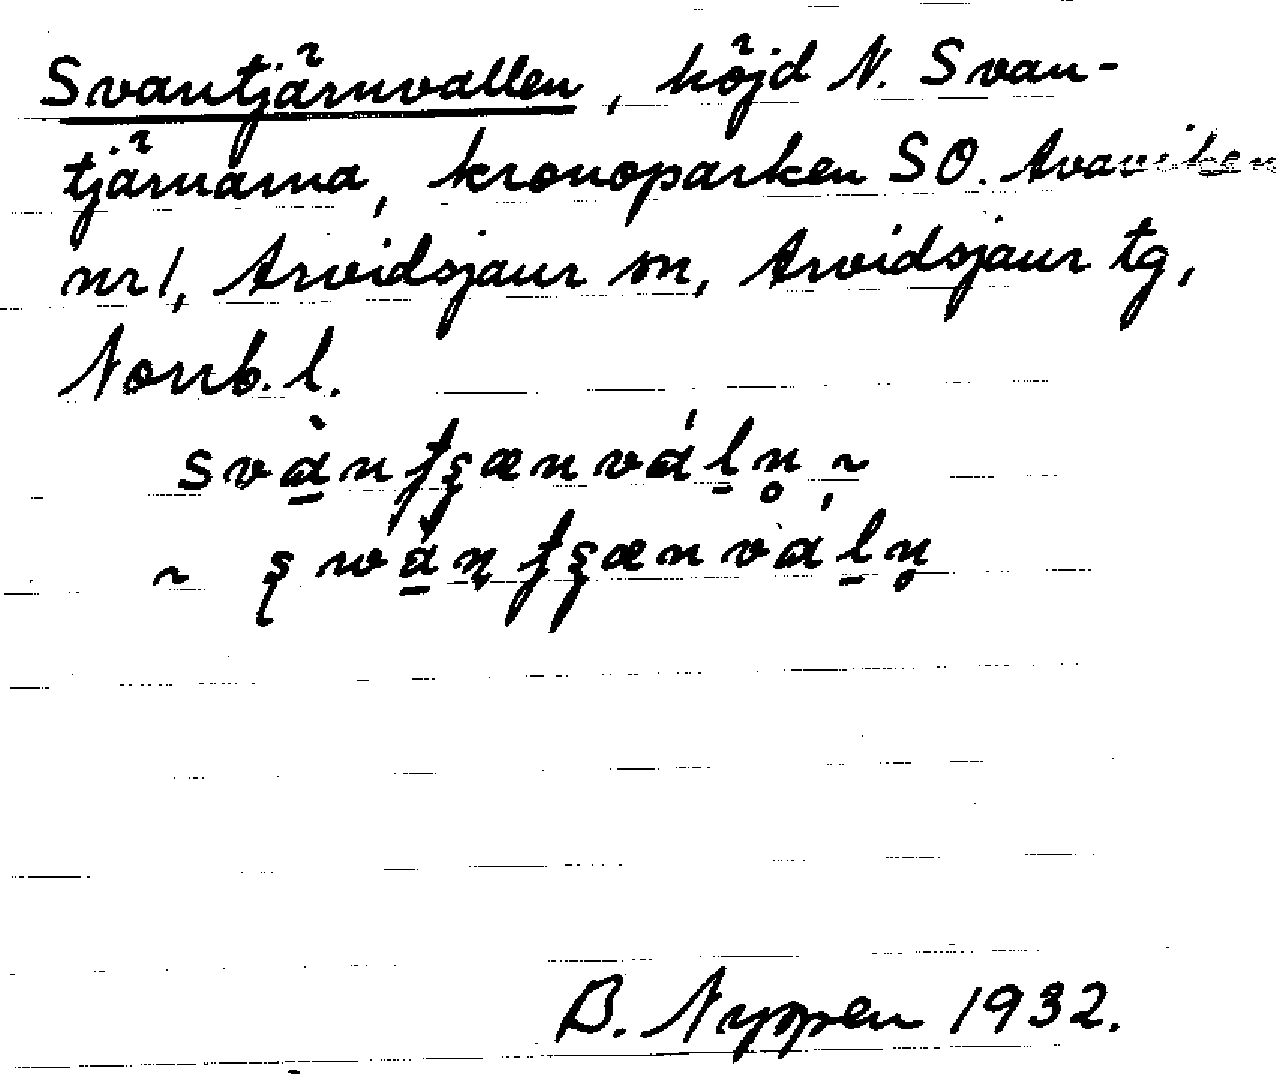 Svantjärnvallen, höjd N. Svan-
tjärnarna, kronoparken SO. Avaviken
nr 1, Arvidsjaur sn, Arvidsjaur tg,
Norrb. l.
B. Nyppen 1932.